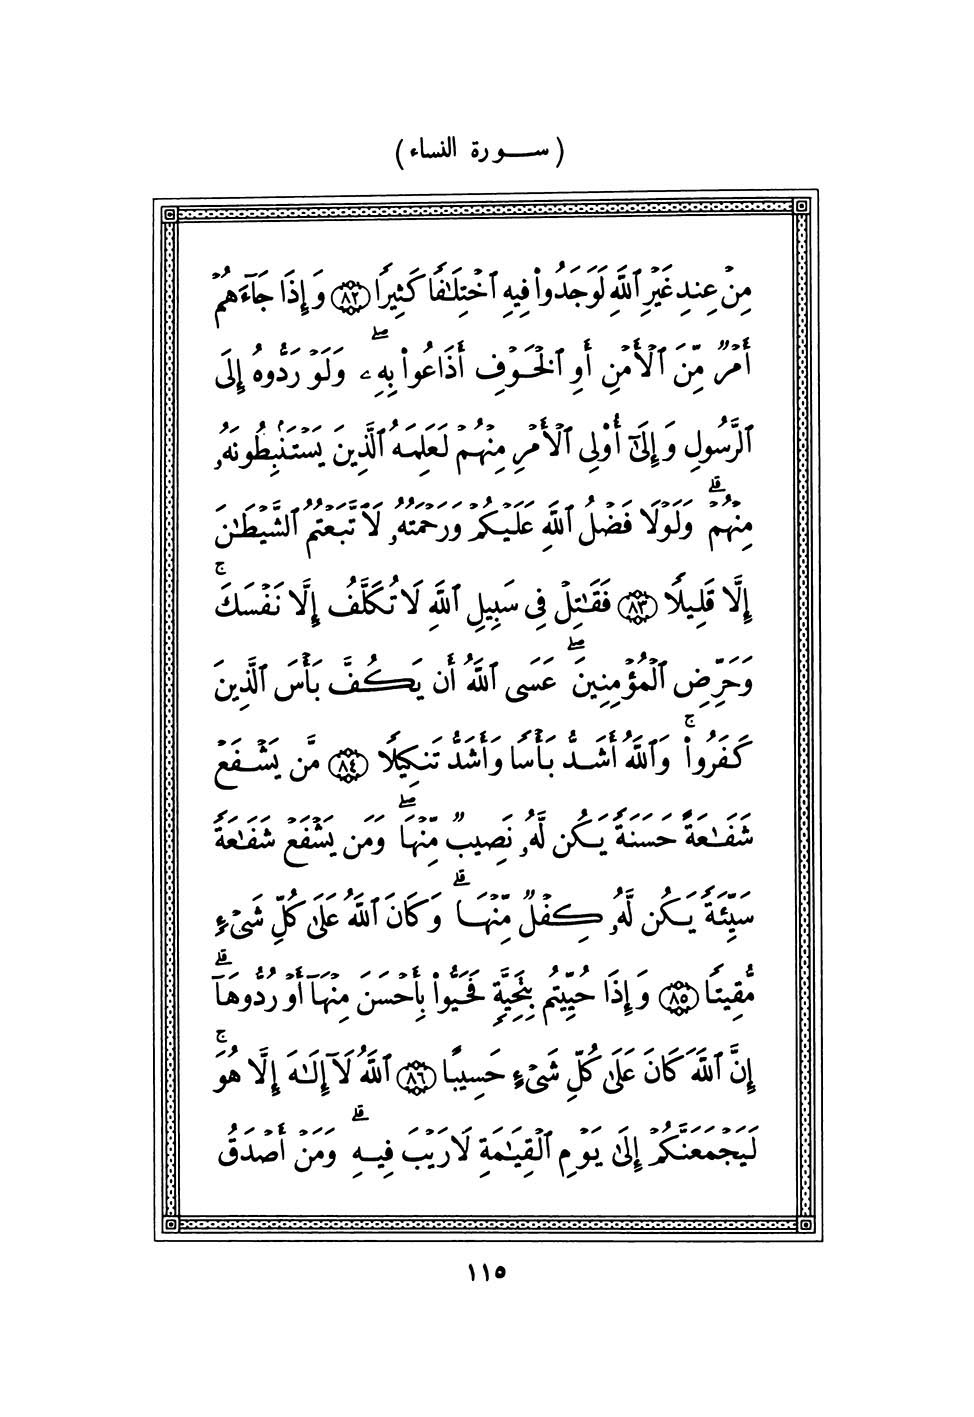 ( ســـورة النساء )
مِنْ عِندِ غَيْرِ ٱللَّهِ لَوَجَدُوا۟ فِيهِ ٱخْتِلَـٰفًا كَثِيرًا ٨٢ وَإِذَا جَآءَهُمْ
أَمْرٌ مِّنَ ٱلْأَمْنِ أَوِ ٱلْخَوْفِ أَذَاعُوا۟ بِهِۦ ۖ وَلَوْ رَدُّوهُ إِلَى
ٱلرَّسُولِ وَإِلَىٰٓ أُو۟لِى ٱلْأَمْرِ مِنْهُمْ لَعَلِمَهُ ٱلَّذِينَ يَسْتَنۢبِطُونَهُۥ
مِنْهُمْ ۗ وَلَوْلَا فَضْلُ ٱللَّهِ عَلَيْكُمْ وَرَحْمَتُهُۥ لَٱتَّبَعْتُمُ ٱلشَّيْطَـٰنَ
إِلَّا قَلِيلًا ٨٣ فَقَـٰتِلْ فِى سَبِيلِ ٱللَّهِ لَا تُكَلَّفُ إِلَّا نَفْسَكَ ۚ
وَحَرِّضِ ٱلْمُؤْمِنِينَ ۖ عَسَى ٱللَّهُ أَن يَكُفَّ بَأْسَ ٱلَّذِينَ
كَفَرُوا۟ ۚ وَٱللَّهُ أَشَدُّ بَأْسًا وَأَشَدُّ تَنكِيلًا ٨٤ مَّن يَشْفَعْ
شَفَـٰعَةً حَسَنَةً يَكُن لَّهُۥ نَصِيبٌ مِّنْهَا ۖ وَمَن يَشْفَعْ شَفَـٰعَةً
سَيِّئَةً يَكُن لَّهُۥ كِفْلٌ مِّنْهَا ۗ وَكَانَ ٱللَّهُ عَلَىٰ كُلِّ شَىْءٍ
مُّقِيتًا ٨٥ وَإِذَا حُيِّيتُم بِتَحِيَّةٍ فَحَيُّوا۟ بِأَحْسَنَ مِنْهَآ أَوْ رُدُّوهَآ ۗ
إِنَّ ٱللَّهَ كَانَ عَلَىٰ كُلِّ شَىْءٍ حَسِيبًا ٨٦ ٱللَّهُ لَآ إِلَـٰهَ إِلَّا هُوَ ۚ
لَيَجْمَعَنَّكُمْ إِلَىٰ يَوْمِ ٱلْقِيَـٰمَةِ لَا رَيْبَ فِيهِ ۗ وَمَنْ أَصْدَقُ
١١٥